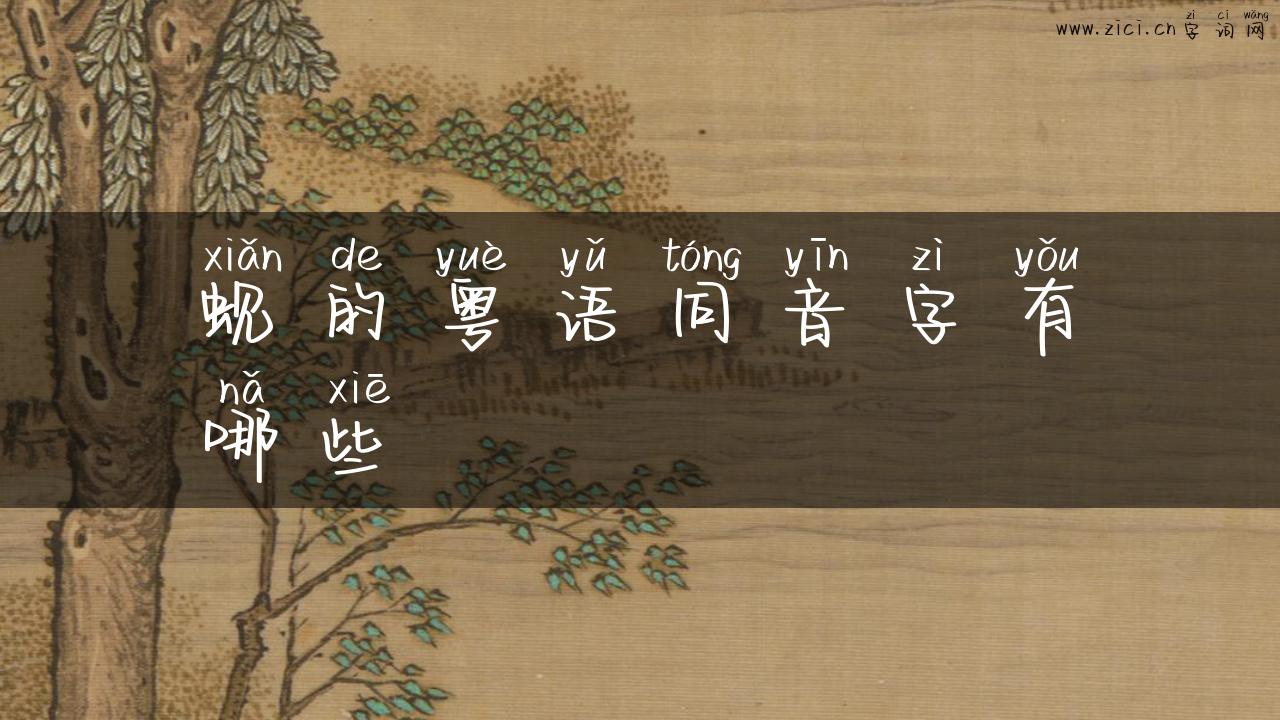 zì cí wǎng
www.zici.cn 字词网
xiǎn de yuè yǔ tóng yīn zì yǒu
蚬的粤语同音字有
nǎ xiē
哪些